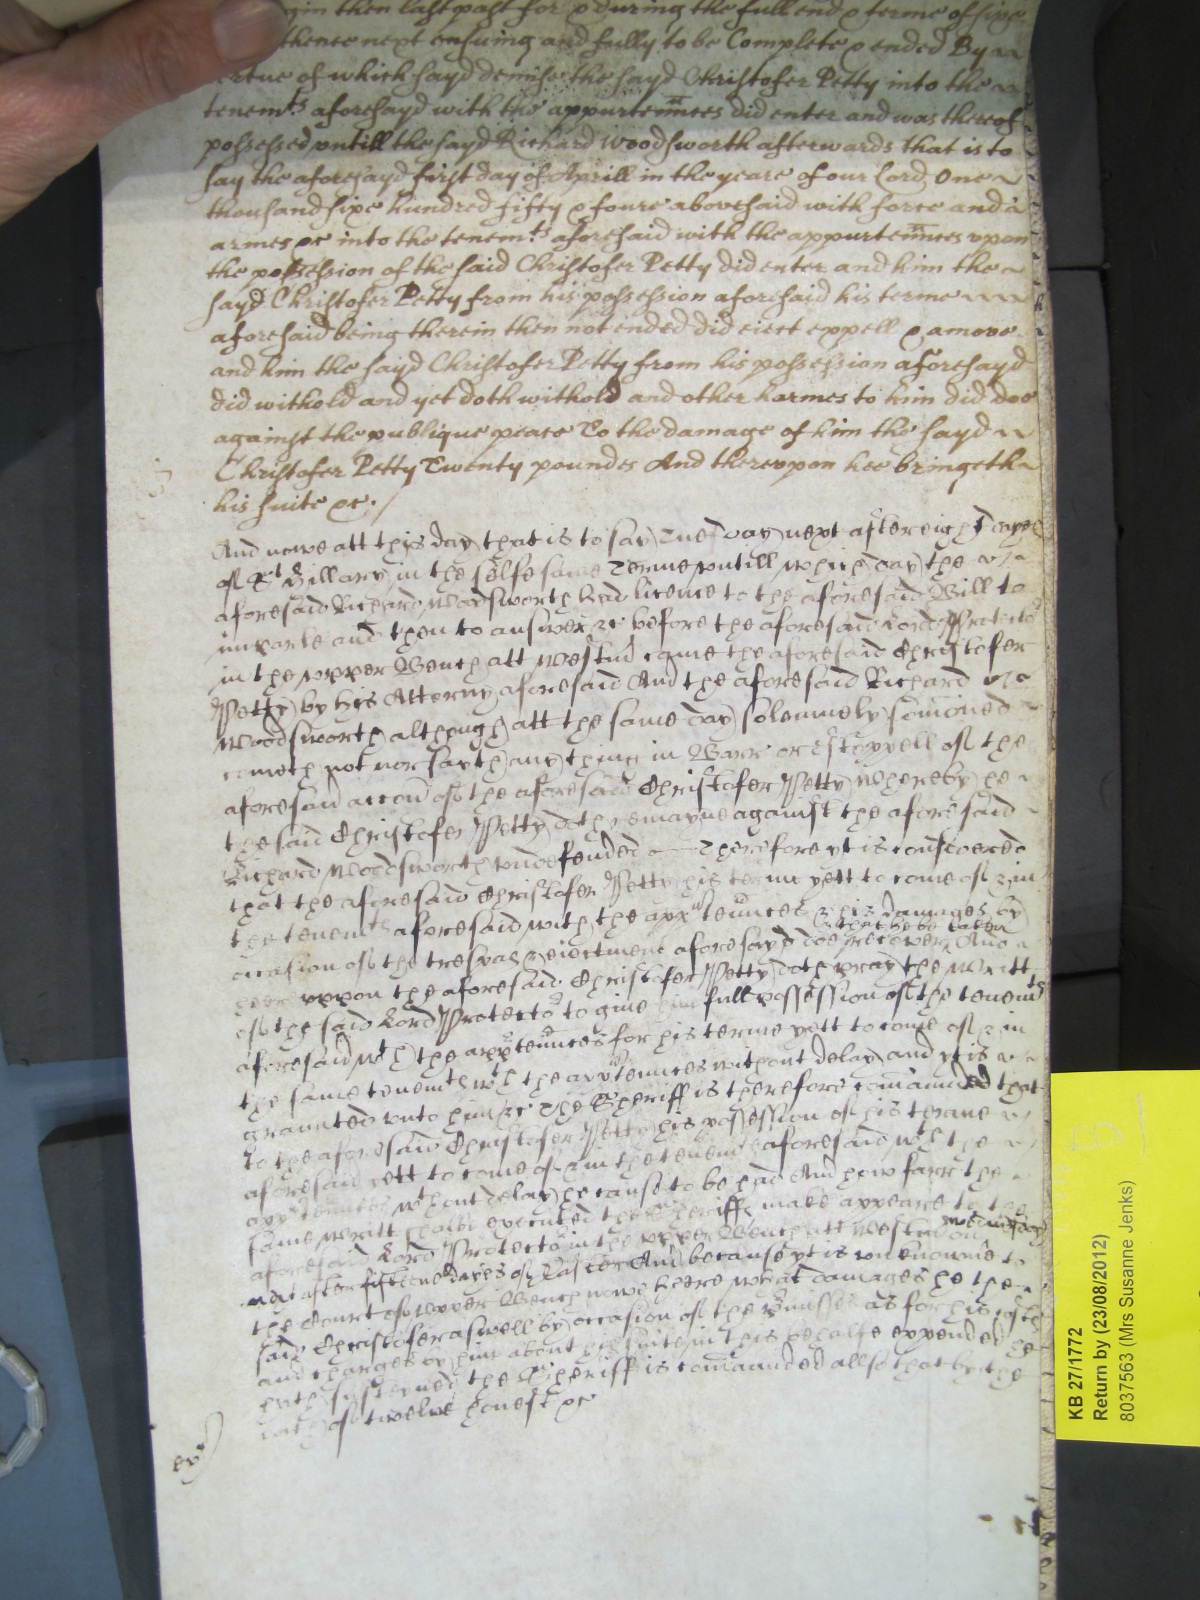 gin then last past for & during the full end & terme of sixe
thence next ensuing and fully to be Complete & ended By
vertue of which sayd demise the sayd Christofer Petty into the
tenemts aforesayd with the appurtennces did enter and was thereof
possessed vntill the sayd Richard Woodsworth afterwards that is to
say the aforesayd first day of Aprill in the yeare of our Lord One
thousand sixe hundred fifty & foure abovesaid with force and
armes &c into the tenemts aforesaid with the appurtennces vpon
the possession of the said Christofer Petty did enter and him the
sayd Christofer Petty from his possession aforesaid his terme
aforesaid being therein then not ended did eiect expell & amove
and him the sayd Christofer Petty from his possession aforesayd
did withold and yet doth withold and other harmes to him did doe
against the publique peace To the damage of him the sayd
Christofer Petty Twenty poundes And therevpon hee bringeth
his suite &c.
And nowe att this day that is to say Tuesday next after eight dayes
of St Hillary in the selfe same Terme vntill which day the
aforesaid Richard Woodsworth had licence to the aforesaid Bill to
imparle and then to answer &c before the aforesaid Lord Protector
in the vpper Bench att Westm came the aforesaid Christofer
Petty by his Attorny aforesaid And the aforesaid Richard
Woodsworth although att the same day solemnely sumoned
cometh not nor sayth any thing in Barr or Estoppell of the
aforesaid accon of the aforesaid Christofer Petty Whereby he
the said Christofer Petty doth remayne against the aforesaid
Richard Woodsworth vndefended Therefore yt is considered
that the aforesaid Christofer Petty his terme yett to come of & in
the tenemts aforesaid with the appurtennces & his damages by
occasion of the trespas & eiectment aforesayd doe recover And
& that he be taken
here vppon the aforesaid Christofer Petty doth pray the Writt
of the said Lord Protector to give him full possession of the tenemts
aforesaid wth the appurtennces for his terme yett to come of & in
the same tenemts wth the appurtennces without delay and yt is
graunted vnto him &c The Sheriff is therefore comaunded that
to the aforesaid Christofer Petty his possession of his terme
aforesaid yett to come of & in the tenemts aforesaid wth the
appurtennces wthout delay he cause to be had And how farr the
same Writt shalbe executed the Sheriff make appeare to the
aforesaid Lord Protector in the vpper Bench att Westm on Wednesday
next after fifteene dayes of Easter And because yt is vnknowne to
the Court of vpper Bench nowe heere what damages he the
said Christofer aswell by occasion of the premisses as for his costs
and charges by him about his suite in this behalfe expended
hath susteyned the Sheriff is comaunded allso that by the
oath of twelve honest &c
KB 27/1772
Return by (23/08/2012)
8037563 (Mrs Susanne Jenks)